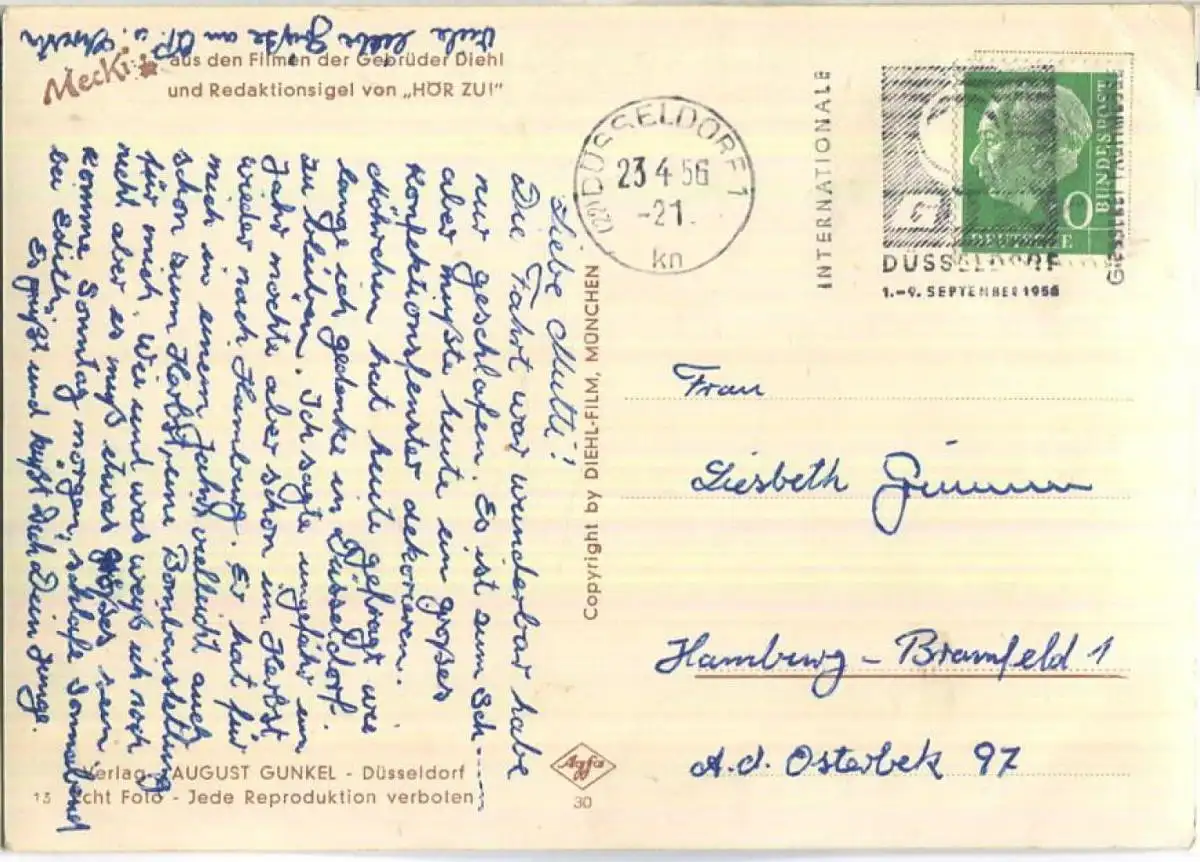 Viele liebe Grüße an OP. u. Christa
Mecki
aus den Filmen der Gebrüder Diehl
und Redaktionsigel von „HÖR ZU!"
Liebe Mutti!
Die Fahrt war wunderbar habe
nur geschlafen. Es ist zum Sch----
aber mußte heute ein großes
Konfektionsfenster dekorieren.
Möhrchen hat heute gefragt wie
lange ich gedenke in Düsseldorf
zu bleiben. Ich sagte ungefähr ein
Jahr möchte aber schon im Herbst
wieder nach Hamburg. Er hat für
mich in einem Jahr vielleicht auch
schon zum Herbst, eine Bombenstellung
für mich. Wie und was weiß ich noch
nicht aber es muß etwas großes sein
komme Sonntag morgen, schlafe Sonnabend
bei Edith.
Es grüßt und küßt Dich Dein Junge.
Verlag AUGUST GUNKEL - Düsseldorf
13 cht Foto - Jede Reproduktion verboten
Copyright by DIEHL-FILM, MÜNCHEN
Agfa
30
(22a) DÜSSELDORF 1
23.4.56
-21
kn
INTERNATIONALE
G
DÜSSELDORF
1.-9. SEPTEMBER 1956
DEUTSCHE
BUNDESPOST
Frau
Liesbeth
Hamburg - Bramfeld 1
A. d. Osterbek 97